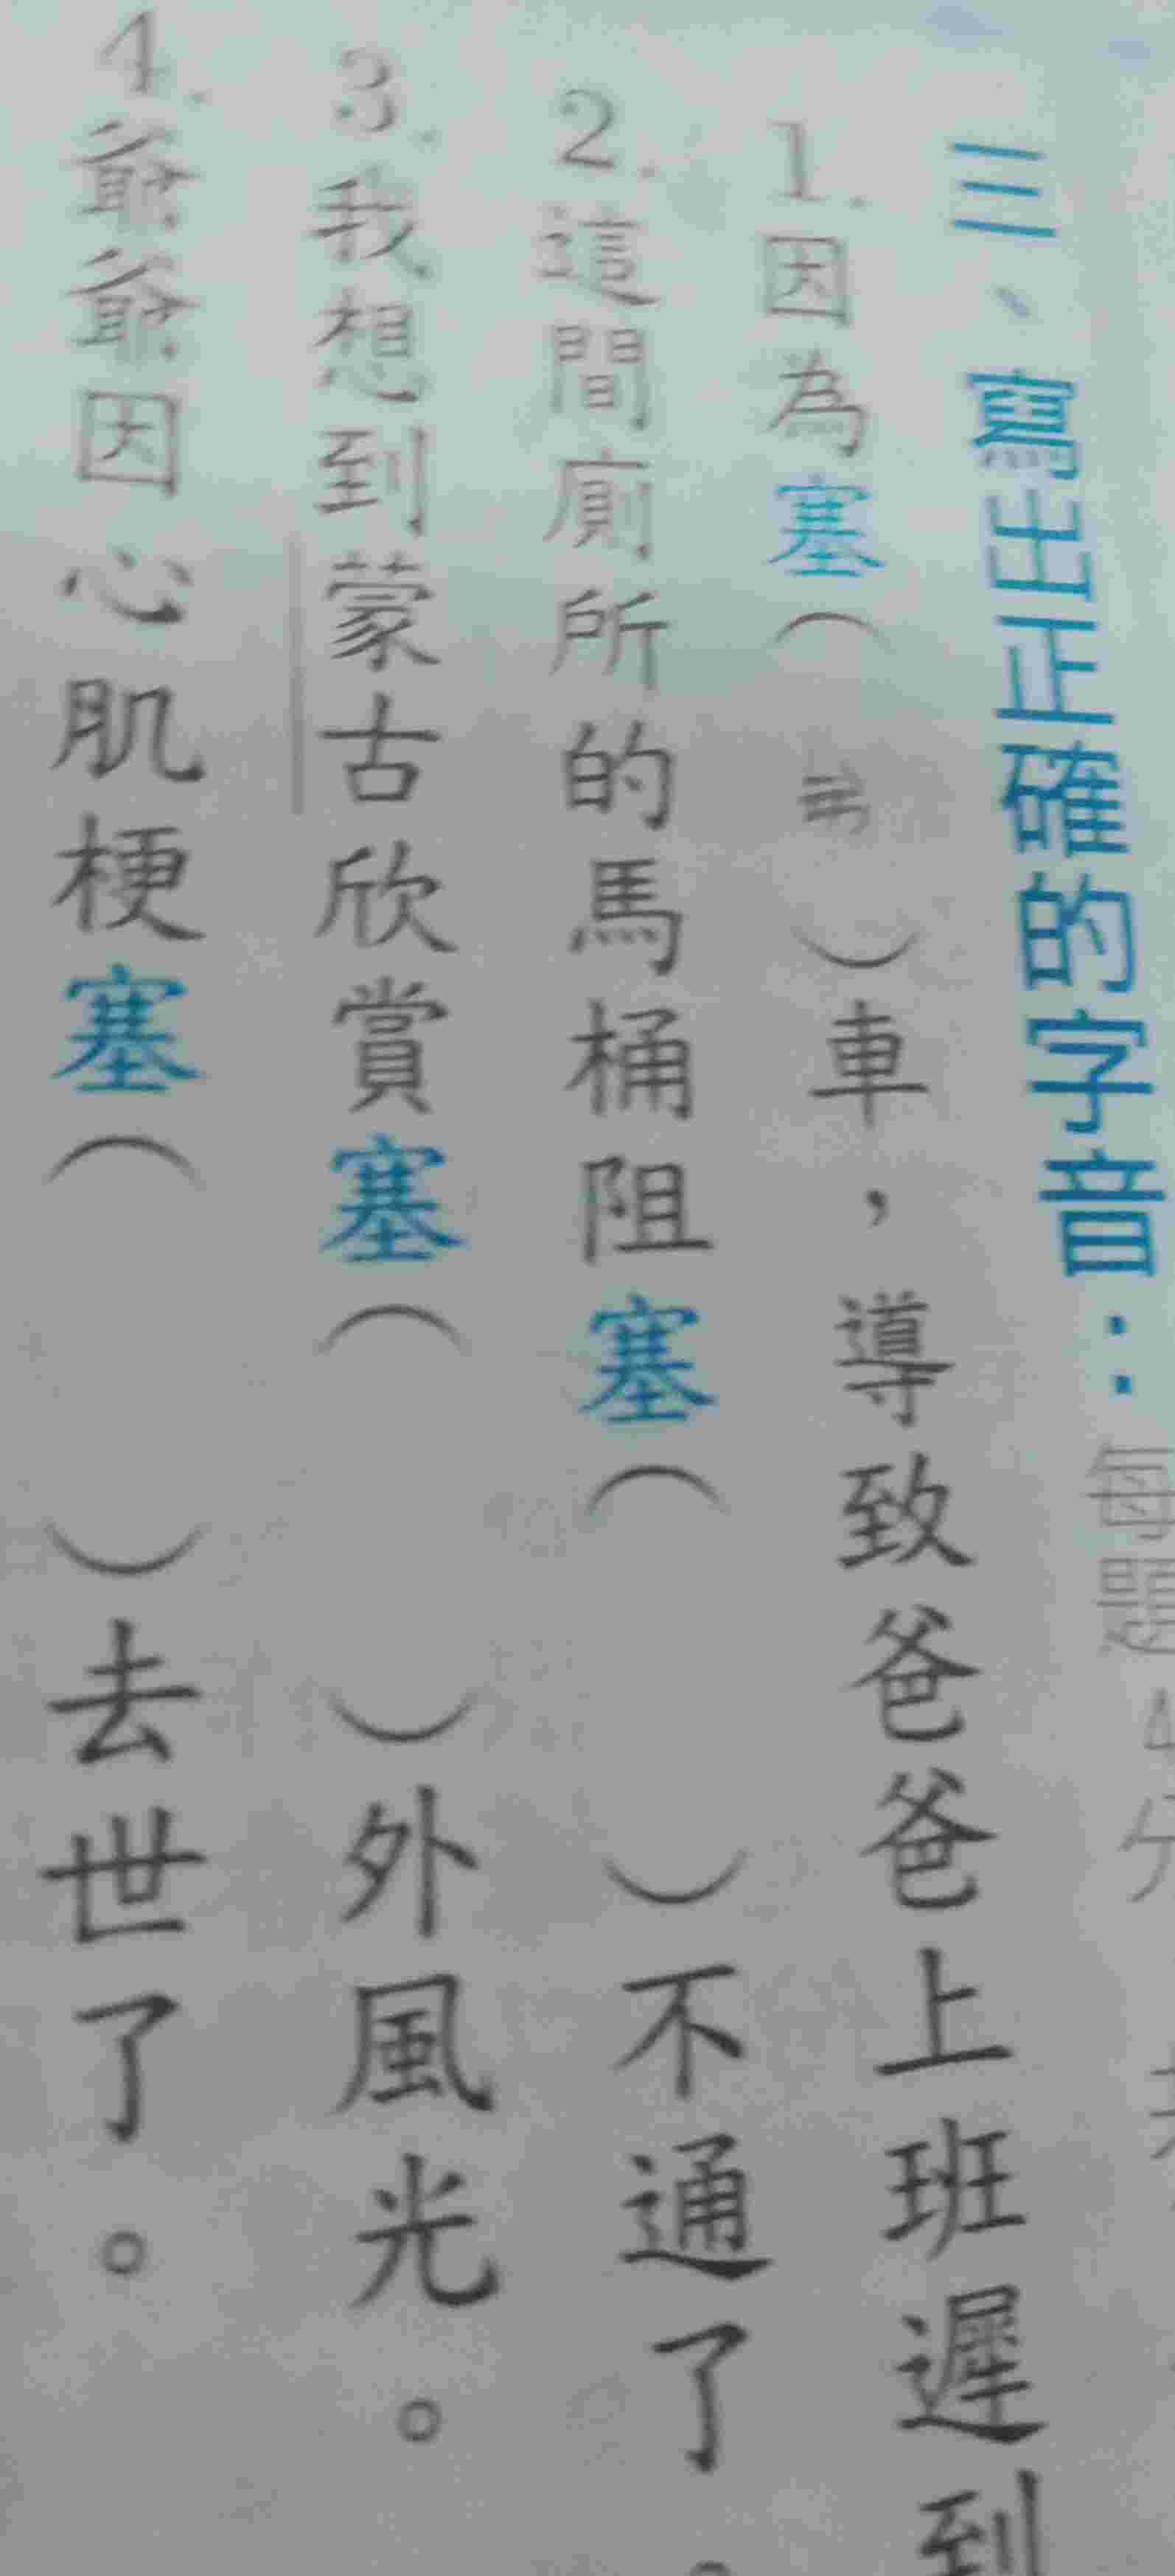 三、寫出正確的字音：每題4分
1.因為塞（　）車，導致爸爸上班遲到
2.這間廁所的馬桶阻塞（　）不通了。
3.我想到蒙古欣賞塞（　）外風光。
4.爺爺因心肌梗塞（　）去世了。